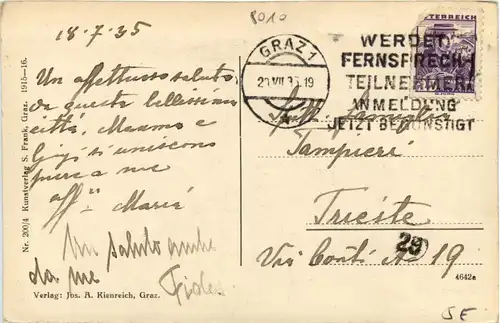 18.7.35
8010
Un affettuoso saluto
da questa bellissima
città. Mamma e
Gigi si uniscono
pure a me
aff.
Un saluto anche
da me
Nr. 200/4 Kunstverlag S. Frank, Graz. 1915—16.
Verlag: Jos. A. Kienreich, Graz.
GRAZ 1
20.VII.35 19
ÖSTERREICH
WERDET
FERNSPRECH-
TEILNEHMER!
ANMELDUNG
JETZT BEGÜNSTIGT
Spett. Famiglia
Tampieri
Trieste
Via Conti No 19
29
4642a
SE